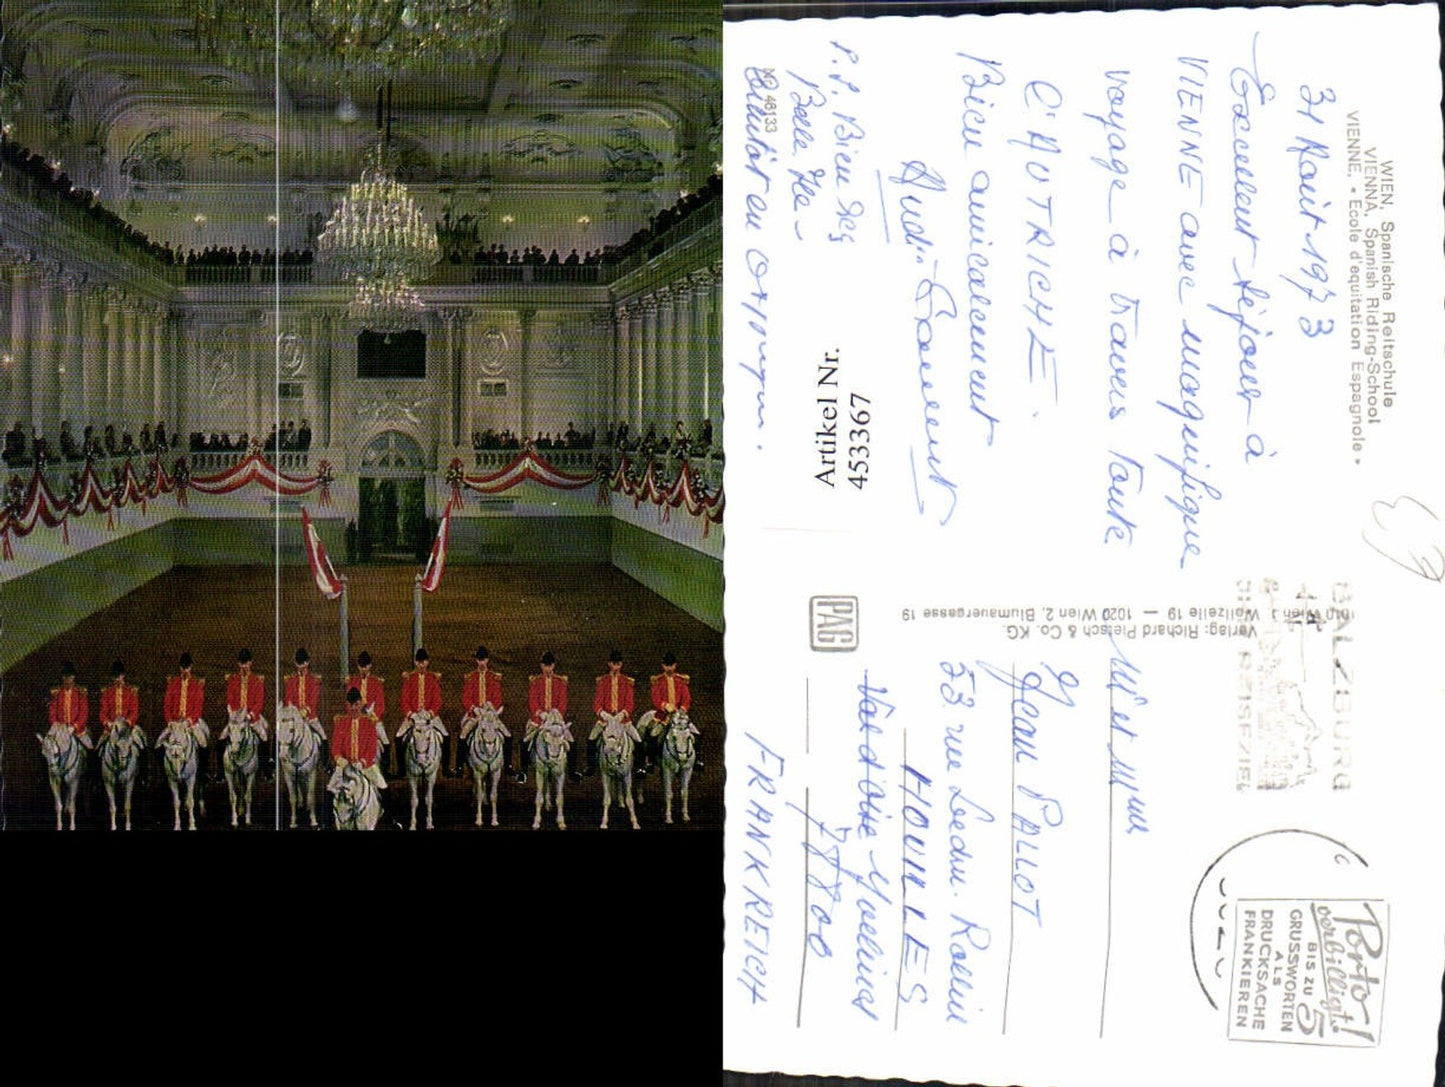 WIEN, Spanische Reitschule
VIENNA, Spanish Riding-School
VIENNE, « Ecole d'equitation Espagnole »
31 Août 1973
Excellent séjour à
VIENNE avec magnifique
voyage à travers toute
l'AUTRICHE.
Bien amicalement
P.S. Bien reçu
Belle Ile
46133
Artikel Nr.
453367
Verlag: Richard Pietsch & Co. KG.
Wollzeile 19 — 1020 Wien 2, Blumauergasse 19
PAG
SALZBURG
Porto
verbilligt!
BIS ZU 5
GRUSSWORTEN
ALS
DRUCKSACHE
FRANKIEREN
Mr et Mme
Jean PALLOT
53 rue Ledru. Rollin
HOUILLES
78800
FRANKREICH